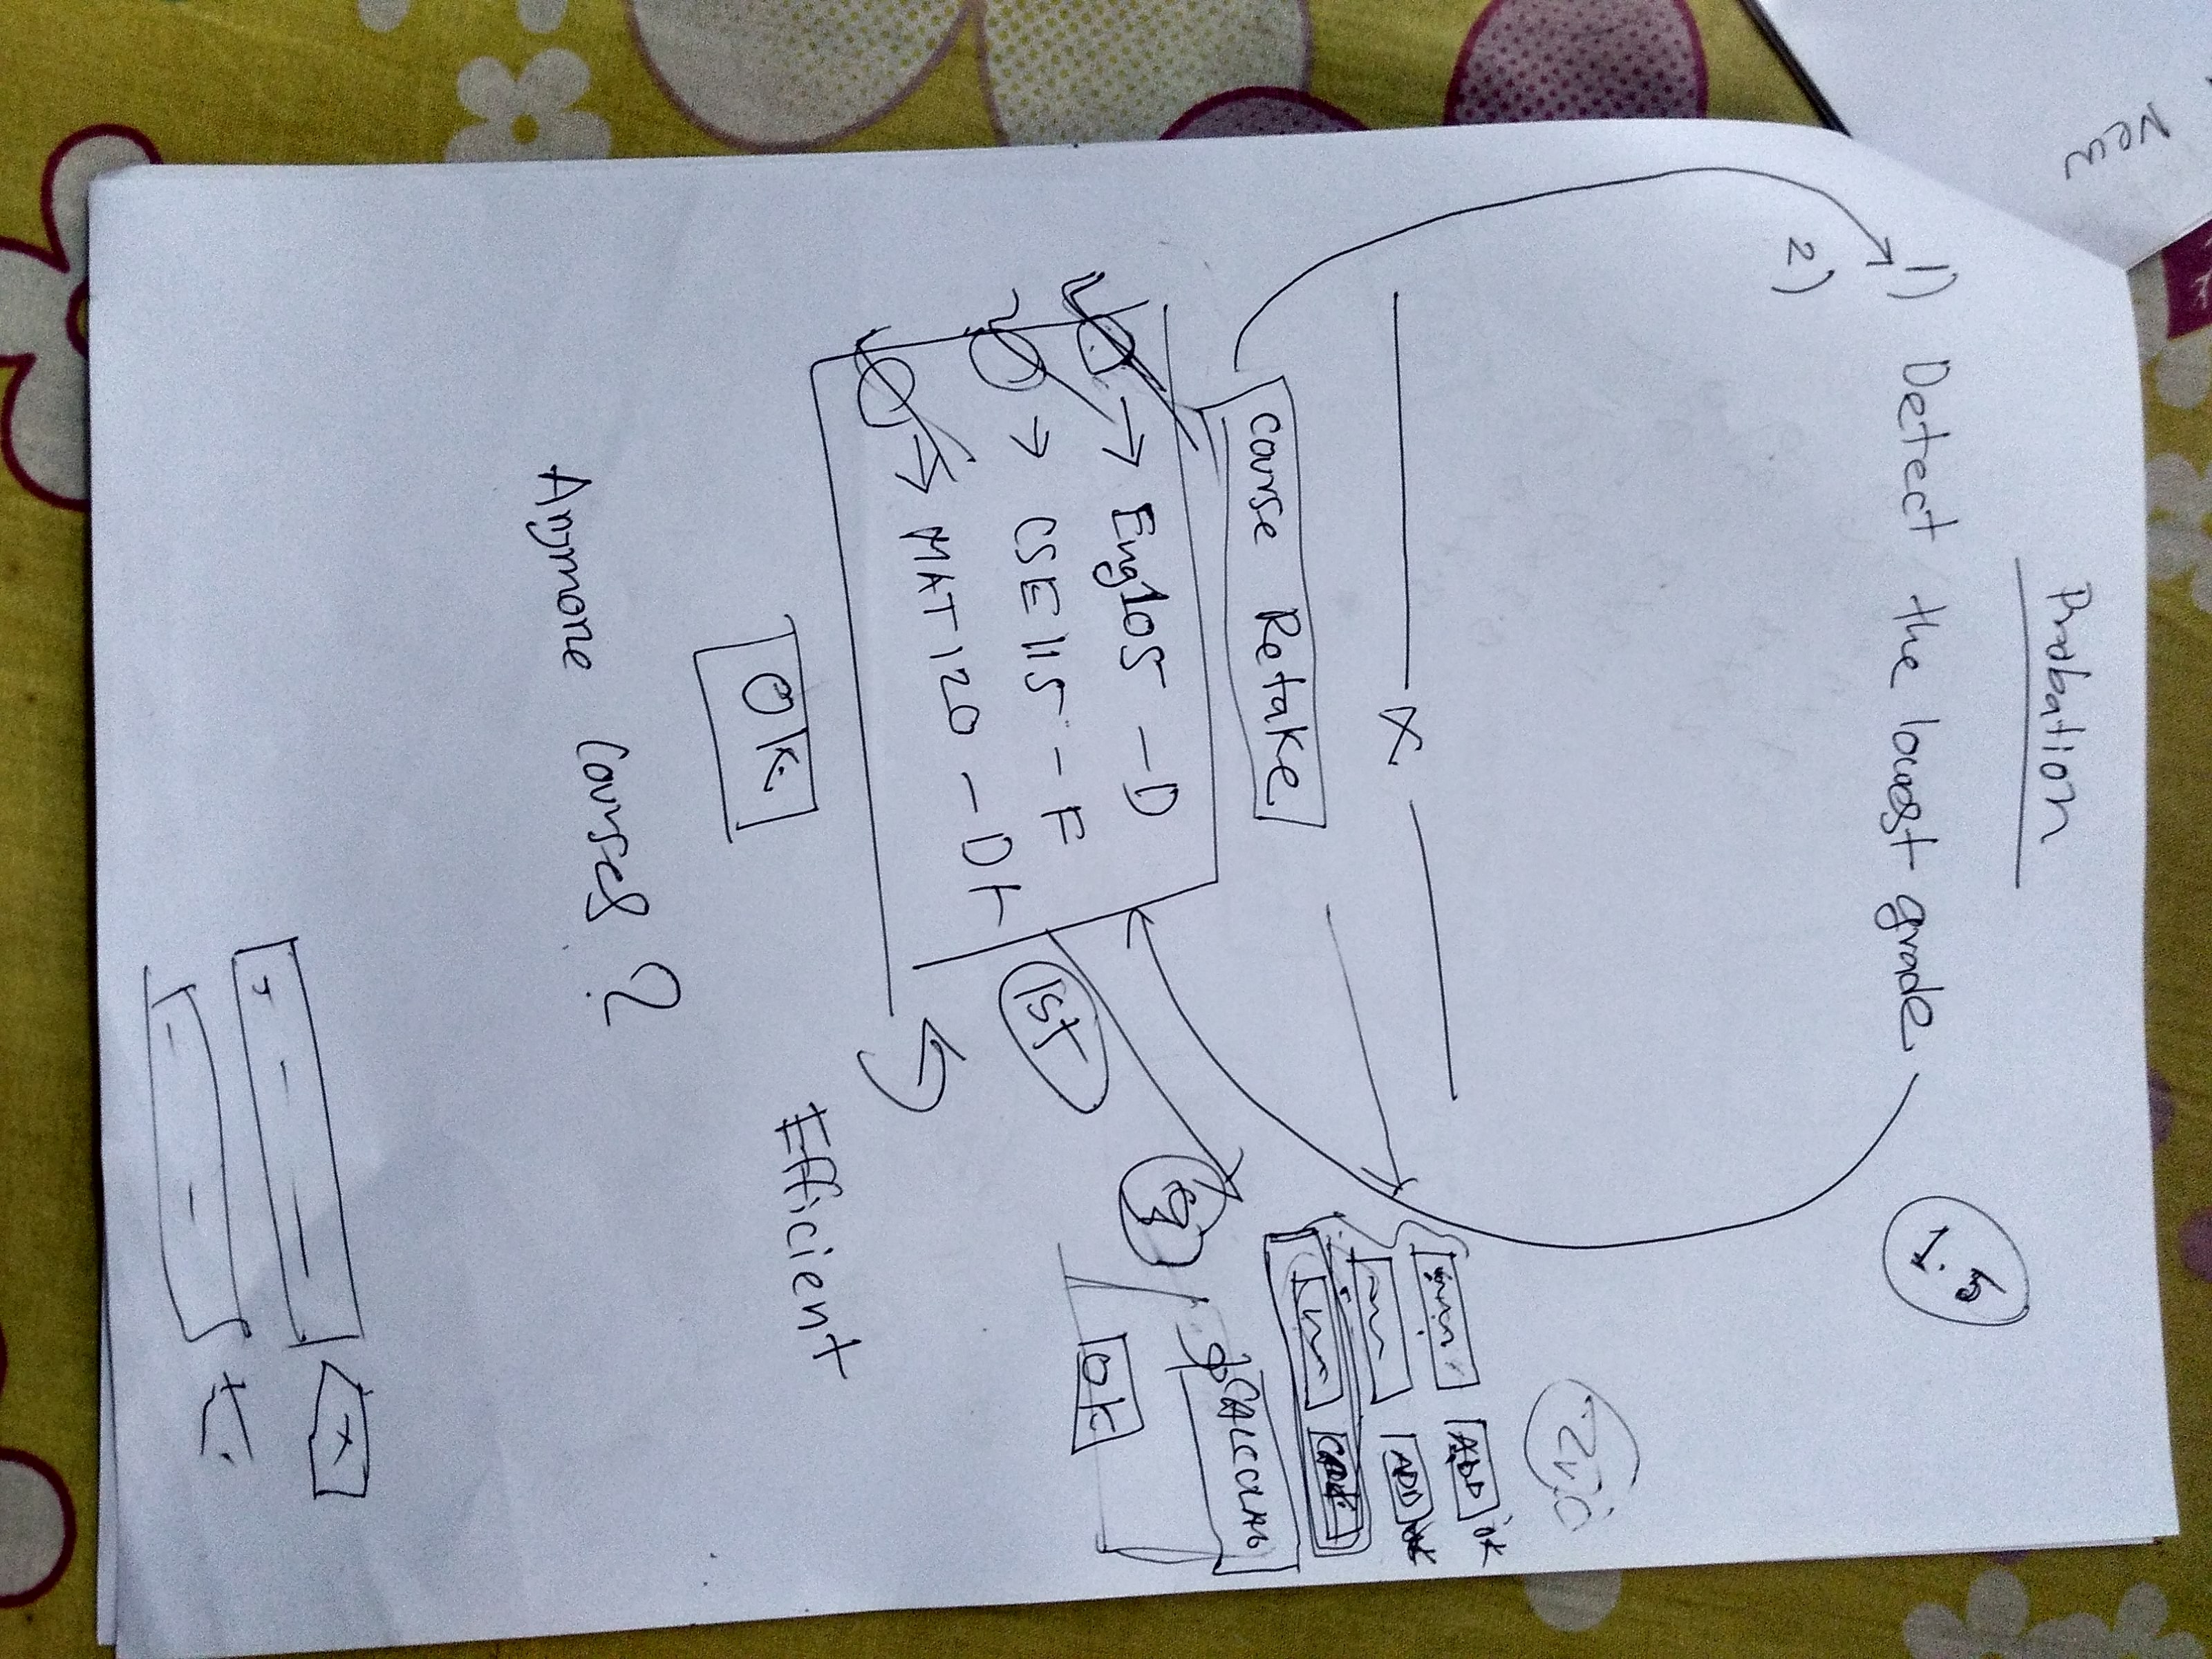 New
Probation
1.5
1) Detect the lowest grade
2)
ADD OK
ADD
Course Retake
→ Eng105 - D
→ CSE115 - F
→ MAT120 - D+
1st
OK
OK
Efficient
Anymore Courses ?